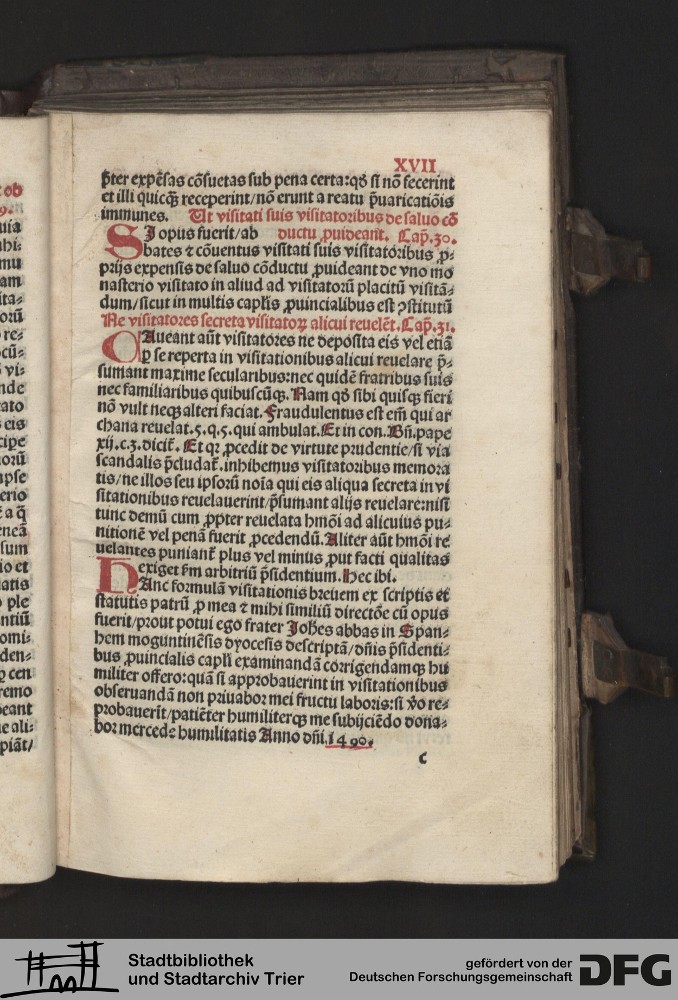 XVII
p̄ter expēsas cōsuetas sub pena certa:qđ si nō fecerint
et illi quicq̄ receperint/nō erunt a reatu p̄uaricatiōis
immunes. Ut visitati suis visitatoribus de saluo cō
SI opus fuerit/ab ductu ꝓuideant. Cap̄.30.
bates ⁊ cōuentus visitati suis visitatoribus ꝓ-
prijs expensis de saluo cōductu ꝓuideant de vno mo
nasterio visitato in aliud ad visitatorū placitū visitā-
dum/sicut in multis capl̄is ꝓuincialibus est ꝯstitutū
Ne visitatores secreta visitatoꝝ alicui reuelēt.Cap̄.31.
CAueant aūt visitatores ne deposita eis vel etiā
ꝑ se reperta in visitationibus alicui reuelare p̄-
sumant maxime secularibus:nec quidē fratribus suis
nec familiaribus quibuscūqꝫ. Nam qđ sibi quisqꝫ fieri
nō vult neqꝫ alteri faciat. Fraudulentus est em̄ qui ar
chana reuelat.5.q.5.qui ambulat. Et in con. Bn̄.pape
xij.c.3.dicit̄. Et qꝛ ꝓcedit de virtute prudentie/si via
scandalis p̄cludat̄.inhibemus visitatoribus memora
tis/ne illos seu ipsorū noīa qui eis aliqua secreta in vi
sitationibus reuelauerint/p̄sumant alijs reuelare:nisi
tunc demū cum ꝓpter reuelata hmōi ad alicuius pu-
nitionē vel penā fuerit ꝓcedendū. Aliter aūt hmōi re
uelantes puniant̄ plus vel minus ꝓut facti qualitas
exiget sm̄ arbitriū p̄sidentium. Hec ibi.
HAnc formulā visitationis breuem ex scriptis et
statutis patrū ꝓ mea ⁊ mihi similiū directōe cū opus
fuerit/prout potui ego frater Joh̄es abbas in Span-
hem moguntinēsis dyocesis descriptā/dn̄is p̄sidenti-
bus ꝓuincialis capl̄i examinandā corrigendamqꝫ hu
militer offero:quā si approbauerint in visitationibus
obseruandā non priuabor mei fructu laboris:si v̄o re-
probauerīt/patiēter humiliterqꝫ me subijciēdo dona-
bor mercede humilitatis Anno dn̄i.1490.
c
Stadtbibliothek
und Stadtarchiv Trier
gefördert von der
Deutschen Forschungsgemeinschaft
DFG